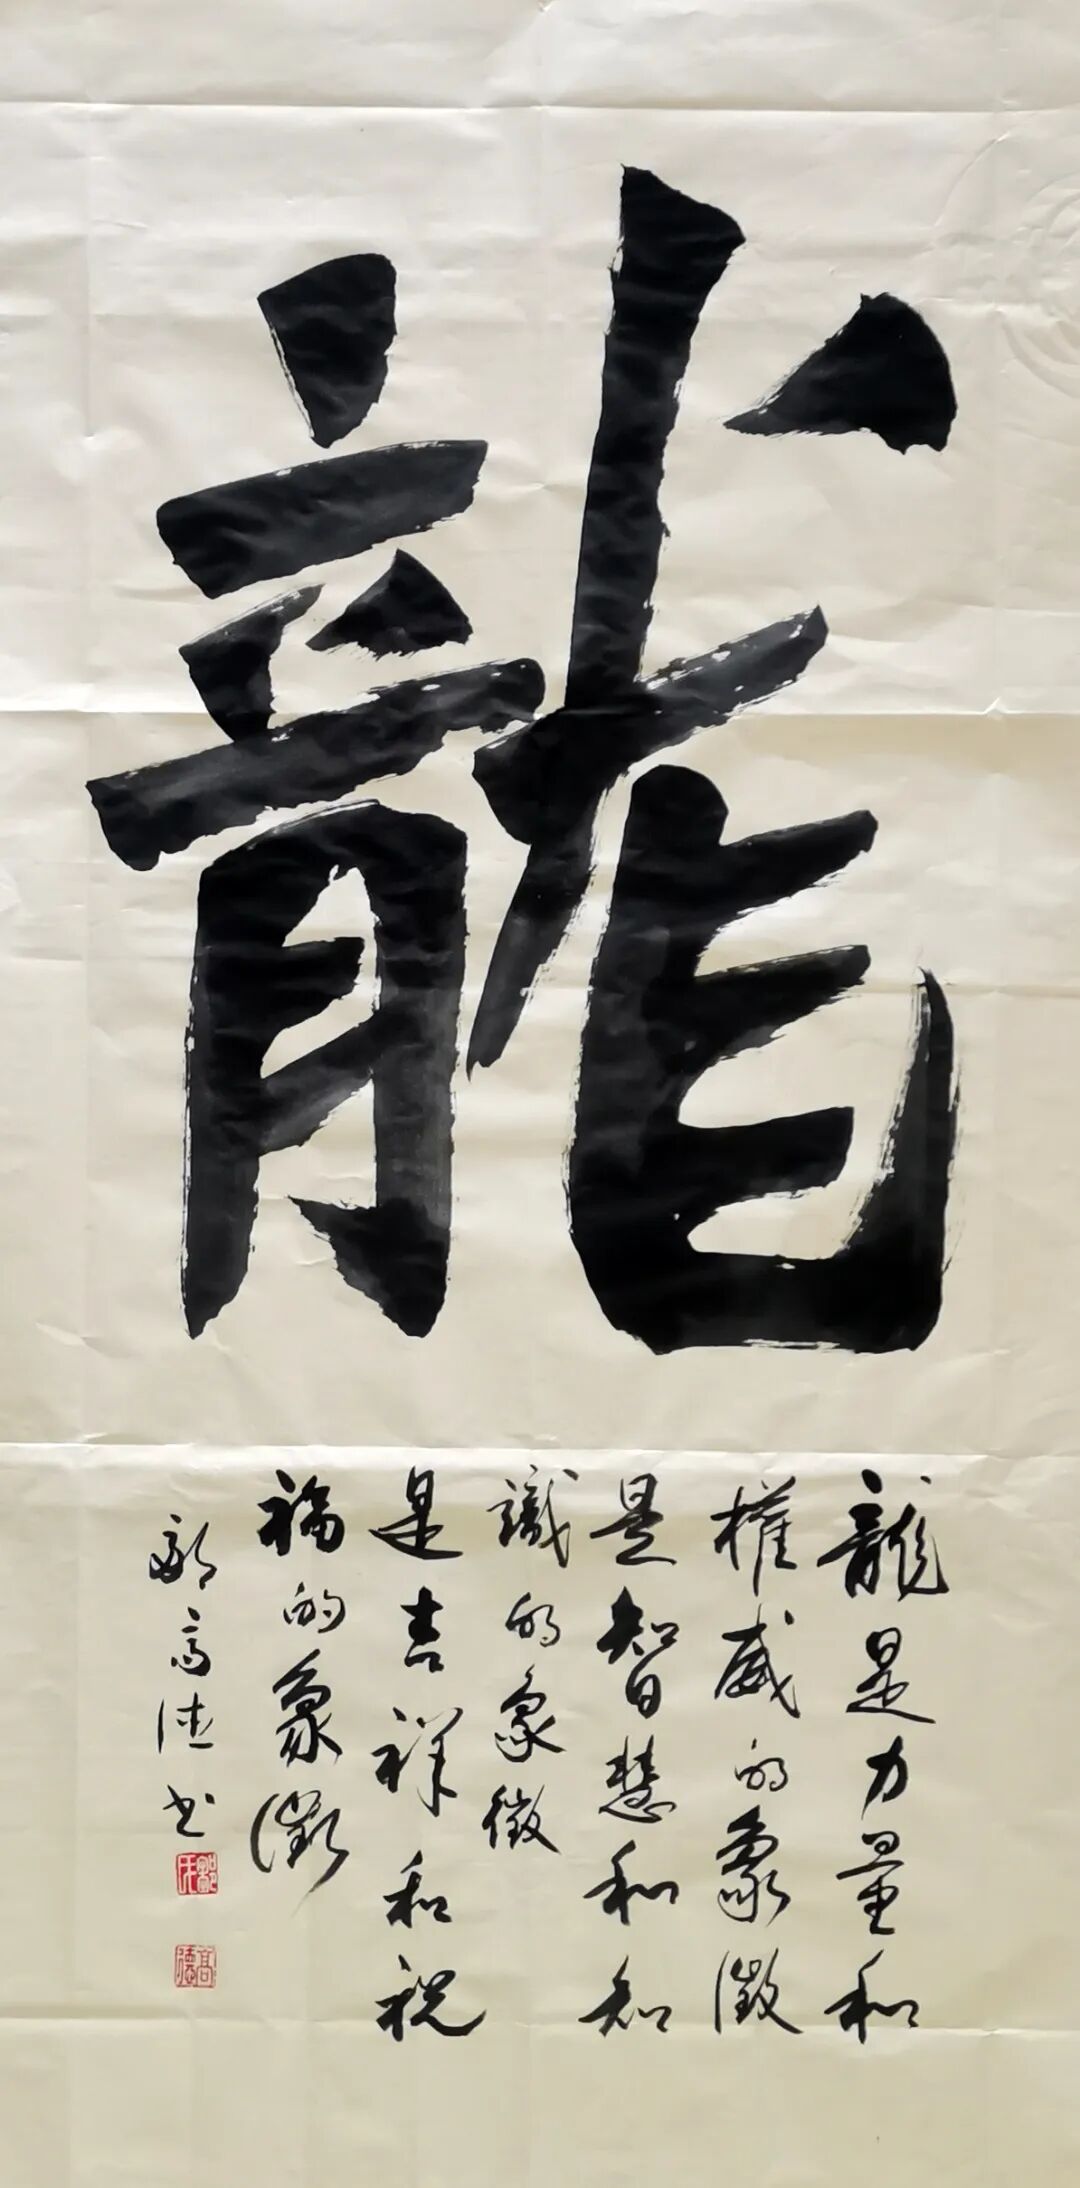 龍
龍是力量和
權威的象徵
是智慧和知
識的象徵
是吉祥和祝
福的象徵
高德书
氏
高德